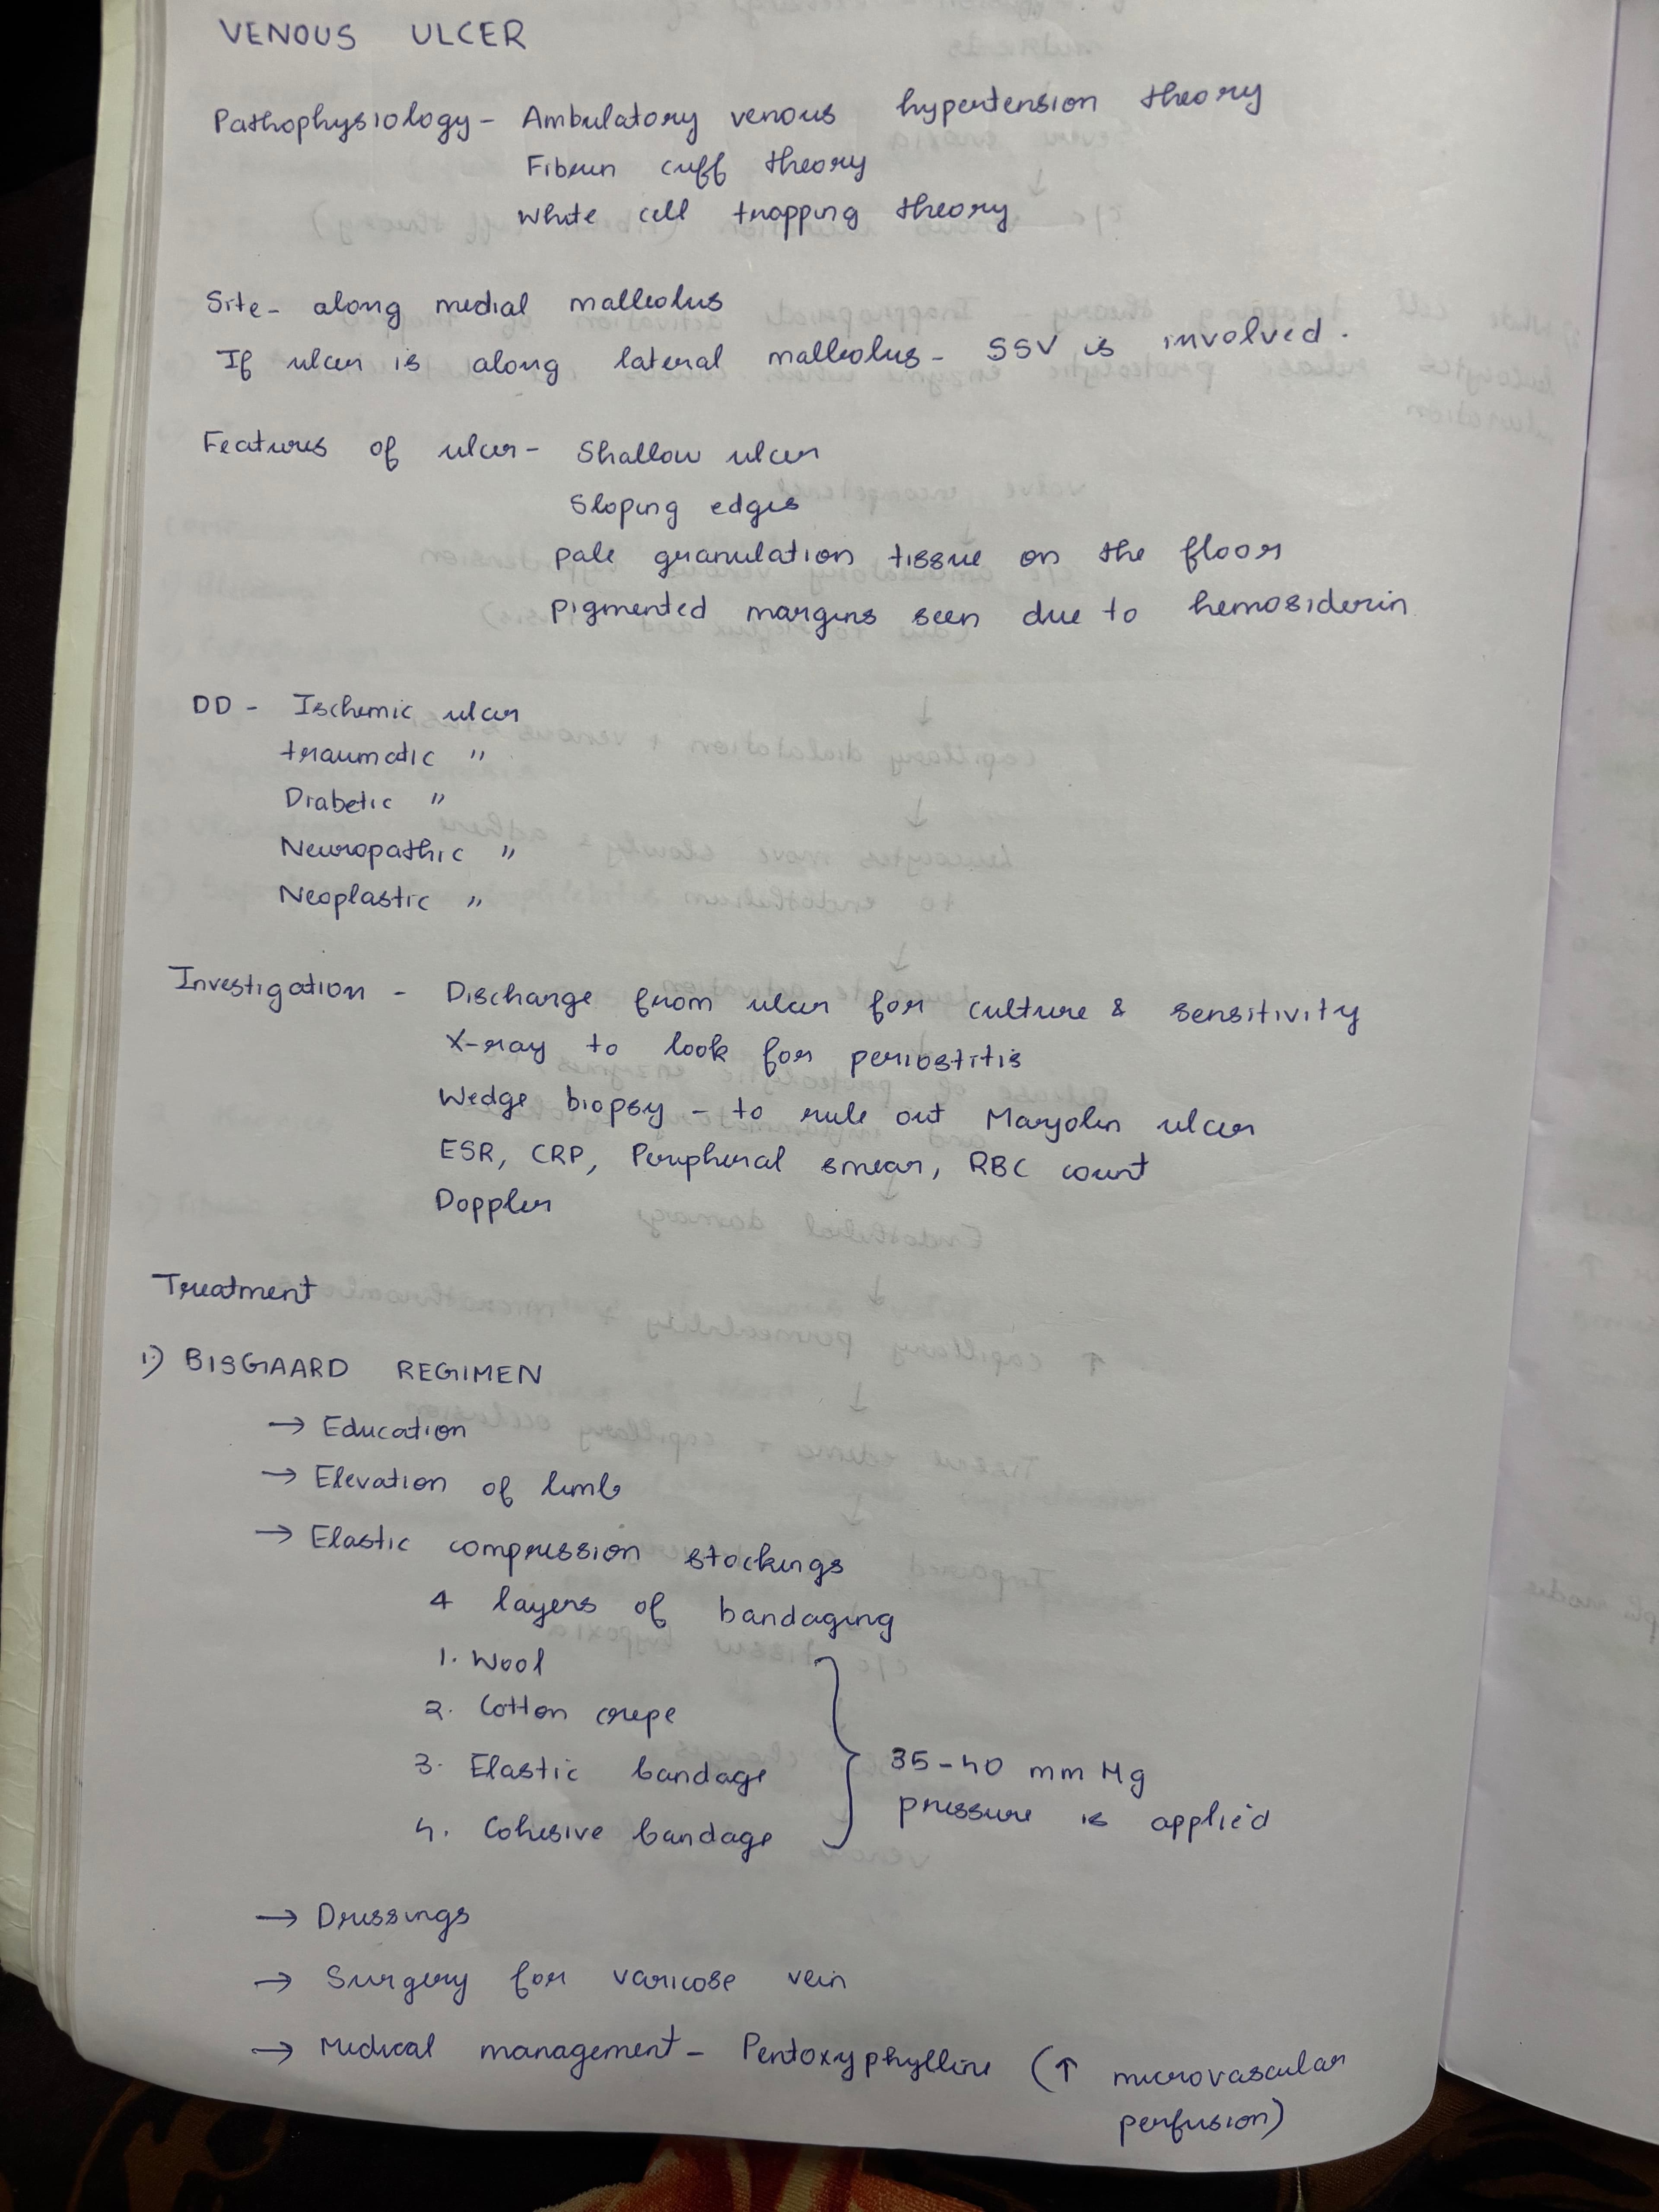 VENOUS ULCER
Pathophysiology - Ambulatory venous hypertension theory
Fibrin cuff theory
White cell trapping theory
Site - along medial malleolus
If ulcer is along lateral malleolus - SSV is involved.
Features of ulcer - Shallow ulcer
Sloping edges
pale granulation tissue on the floor
pigmented margins seen due to hemosiderin
DD - Ischemic ulcer
traumatic "
Diabetic "
Neuropathic "
Neoplastic "
Investigation - Discharge from ulcer for culture & sensitivity
X-ray to look for periostitis
Wedge biopsy - to rule out Marjolin ulcer
ESR, CRP, Peripheral smear, RBC count
Doppler
Treatment
1.) BISGAARD REGIMEN
→ Education
→ Elevation of limb
→ Elastic compression stockings
4 layers of bandaging
1. Wool
2. Cotton crepe
3. Elastic bandage
4. Cohesive bandage
35-40 mm Hg
pressure is applied
→ Dressings
→ Surgery for varicose vein
→ Medical management - Pentoxyphylline (↑ microvascular
perfusion)